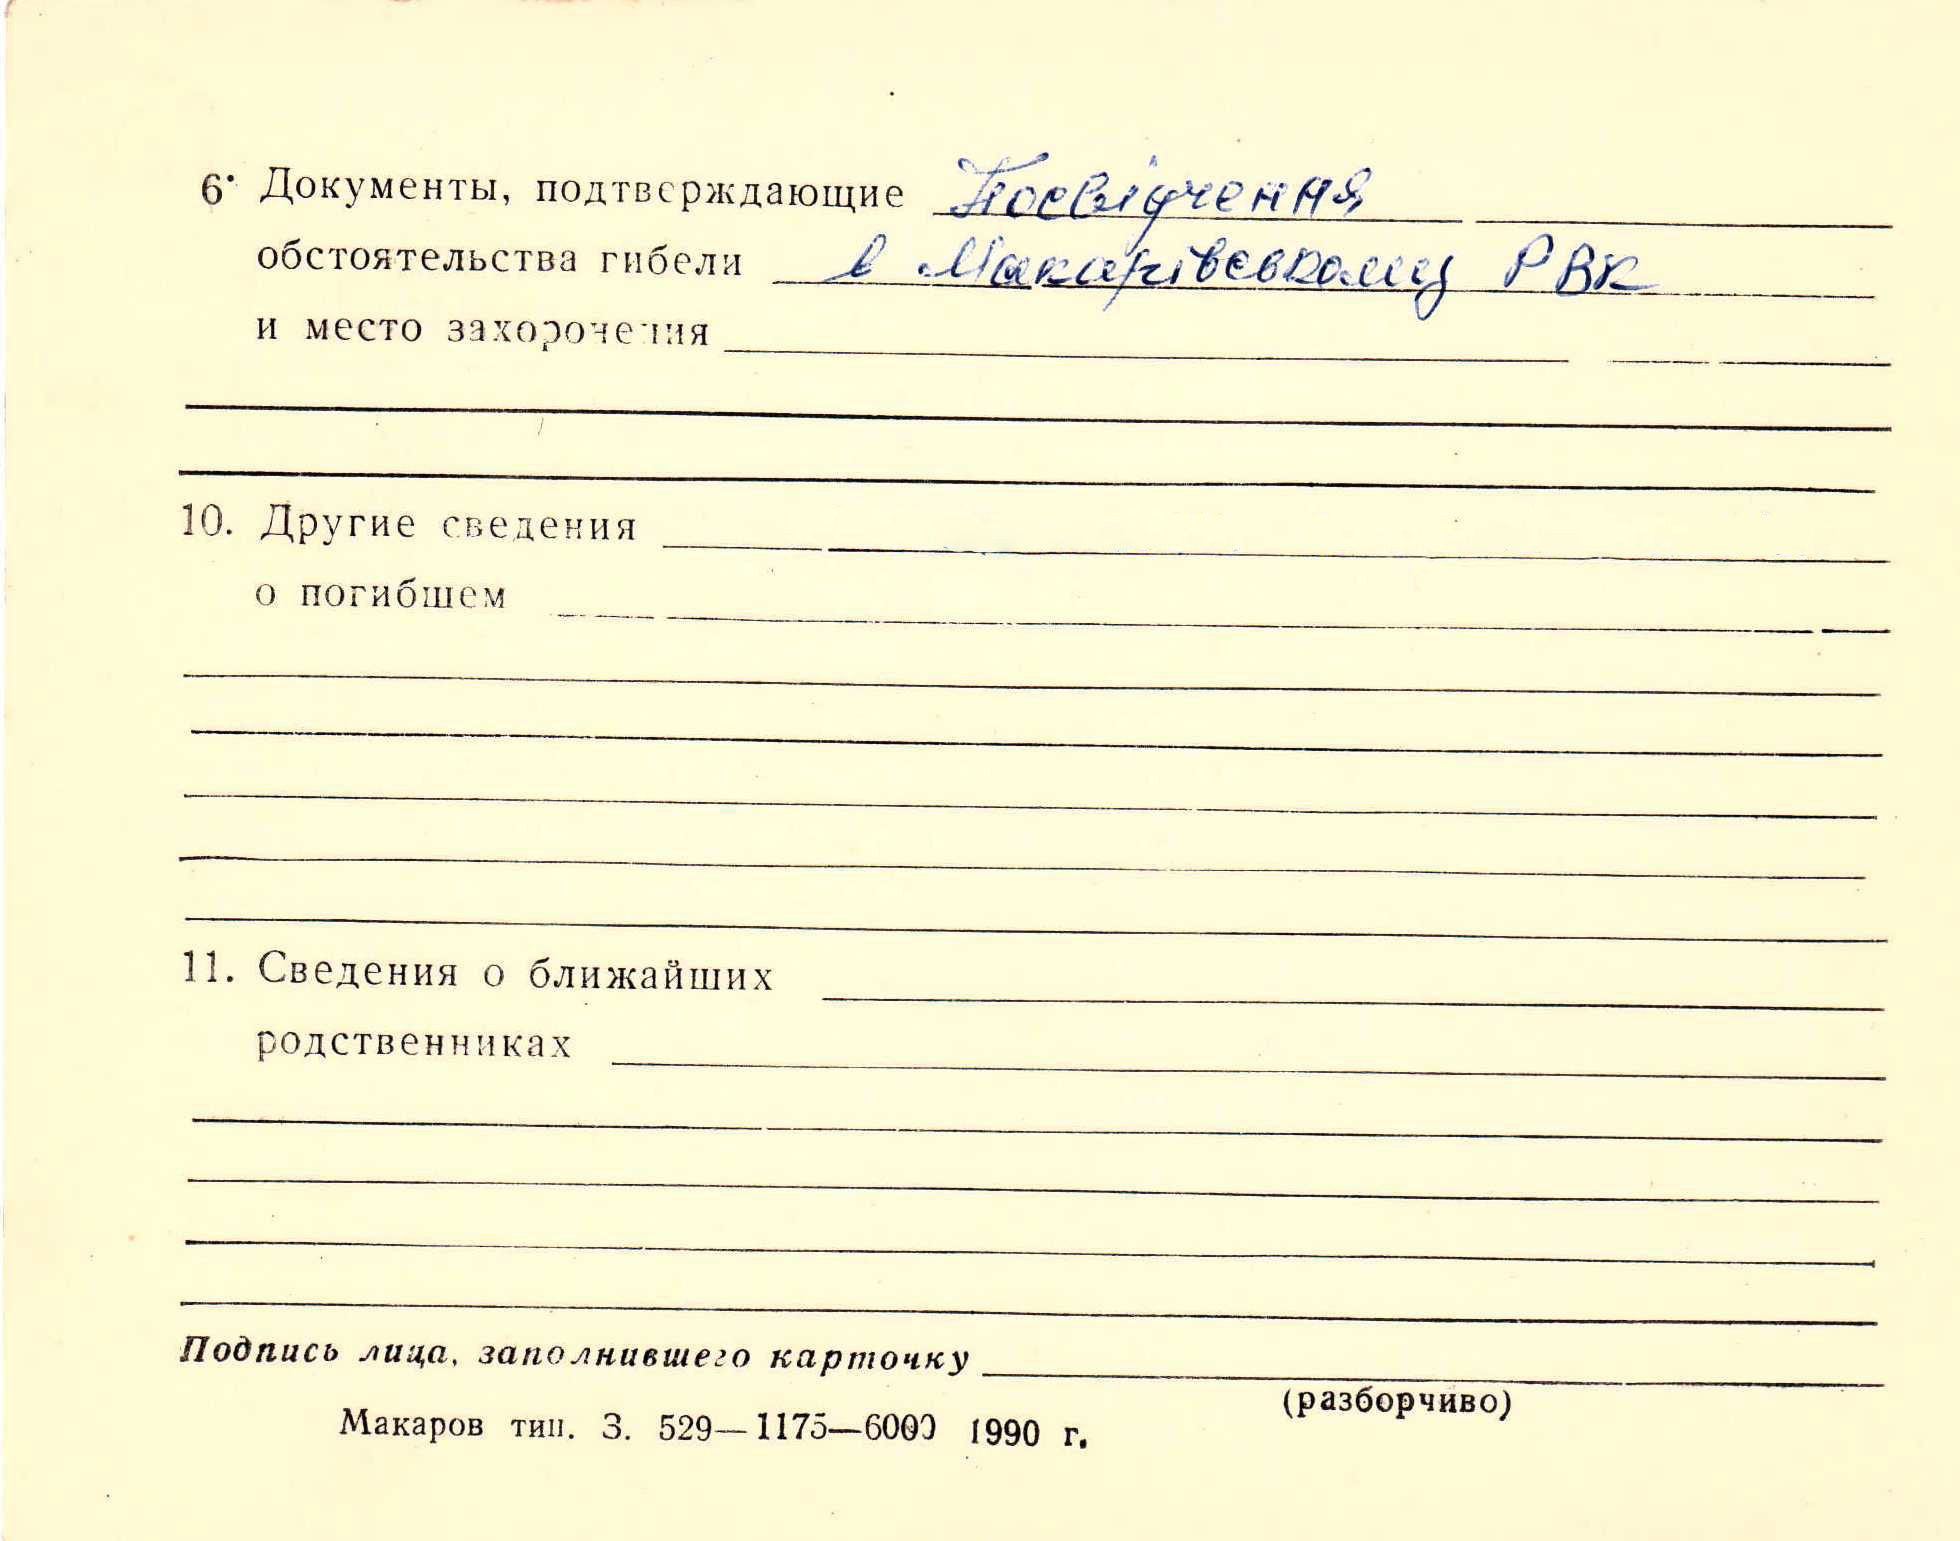 6. Документы, подтверждающие Посвідчення,
обстоятельства гибели в Макарівському РВК
и место захоронения
10. Другие сведения
о погибшем
11. Сведения о ближайших
родственниках
Подпись лица, заполнившего карточку
(разборчиво)
Макаров тип. З. 529—1175—6000 1990 г.